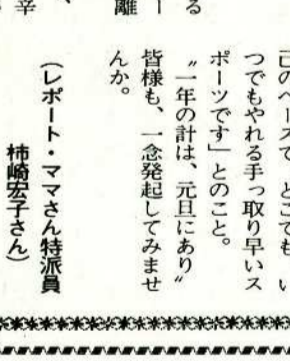 る
離
辛
己のペースで、どこでも、い
つでもやれる手っ取り早いス
ポーツです」とのこと。
〝一年の計は、元旦にあり〟
皆様も、一念発起してみませ
んか。
(レポート・ママさん特派員
柿崎宏子さん)